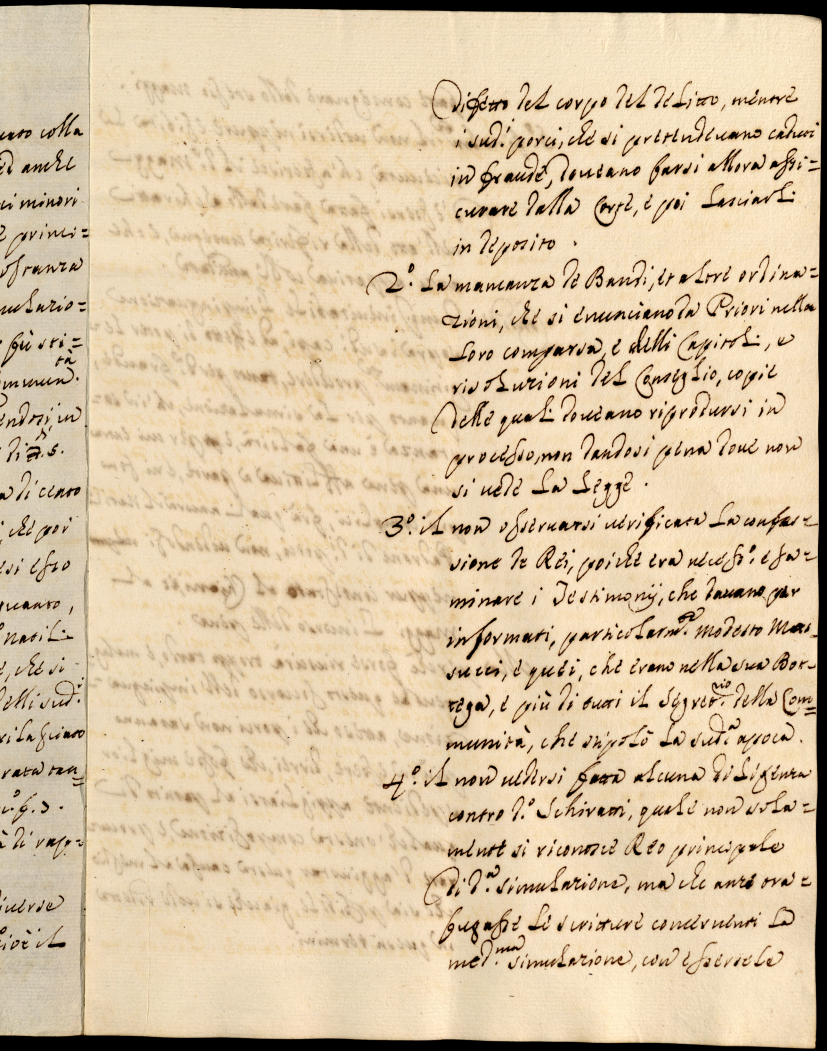 cato colla
ed anche
ei minori
è princi=
nularzio=
fù sti=
endosi in
di A. S.
a di cento
, che poi
esi esso
quanto,
natili
e, che si
delli sud.i
rilasciato
rata tan=
à di rapp=
diverse
cioè il
difetto del corpo del delitto, mentre
i sud.i porci, che si pretendevano caduti
in fraude, doveano farsi allora assi=
curare dalla Corte, e poi lasciarli
in deposito.
2.o La mancanza de Bandi, et altre ordina=
zioni, che si enunciano da Priori nella
loro comparsa, e delli Capitoli, e
risoluzioni del Conseglio, copie
delle quali doveano riprodursi in
processo, non dandosi pena dove non
si vede la Legge.
3.o il non osservarsi verificata la confes=
sione de Rei, poiché era necess.o esa=
minare i Testimonij, che davano per
informati, particolarm.e Modesto Mas=
succi, e quei, che erano nella sua Bot=
tega, e più di tutti il Segret.rio della Com=
munità, che stipolò la sud.a apoca.
4.o il non vedersi fatta alcuna diligenza
contro d.o Schiratti, quale non sola=
mente si riconosce Reo principale
di d.a simulazione, ma che anze ora=
fugasse le scritture concernenti la
med.ma simulazione, con essersele